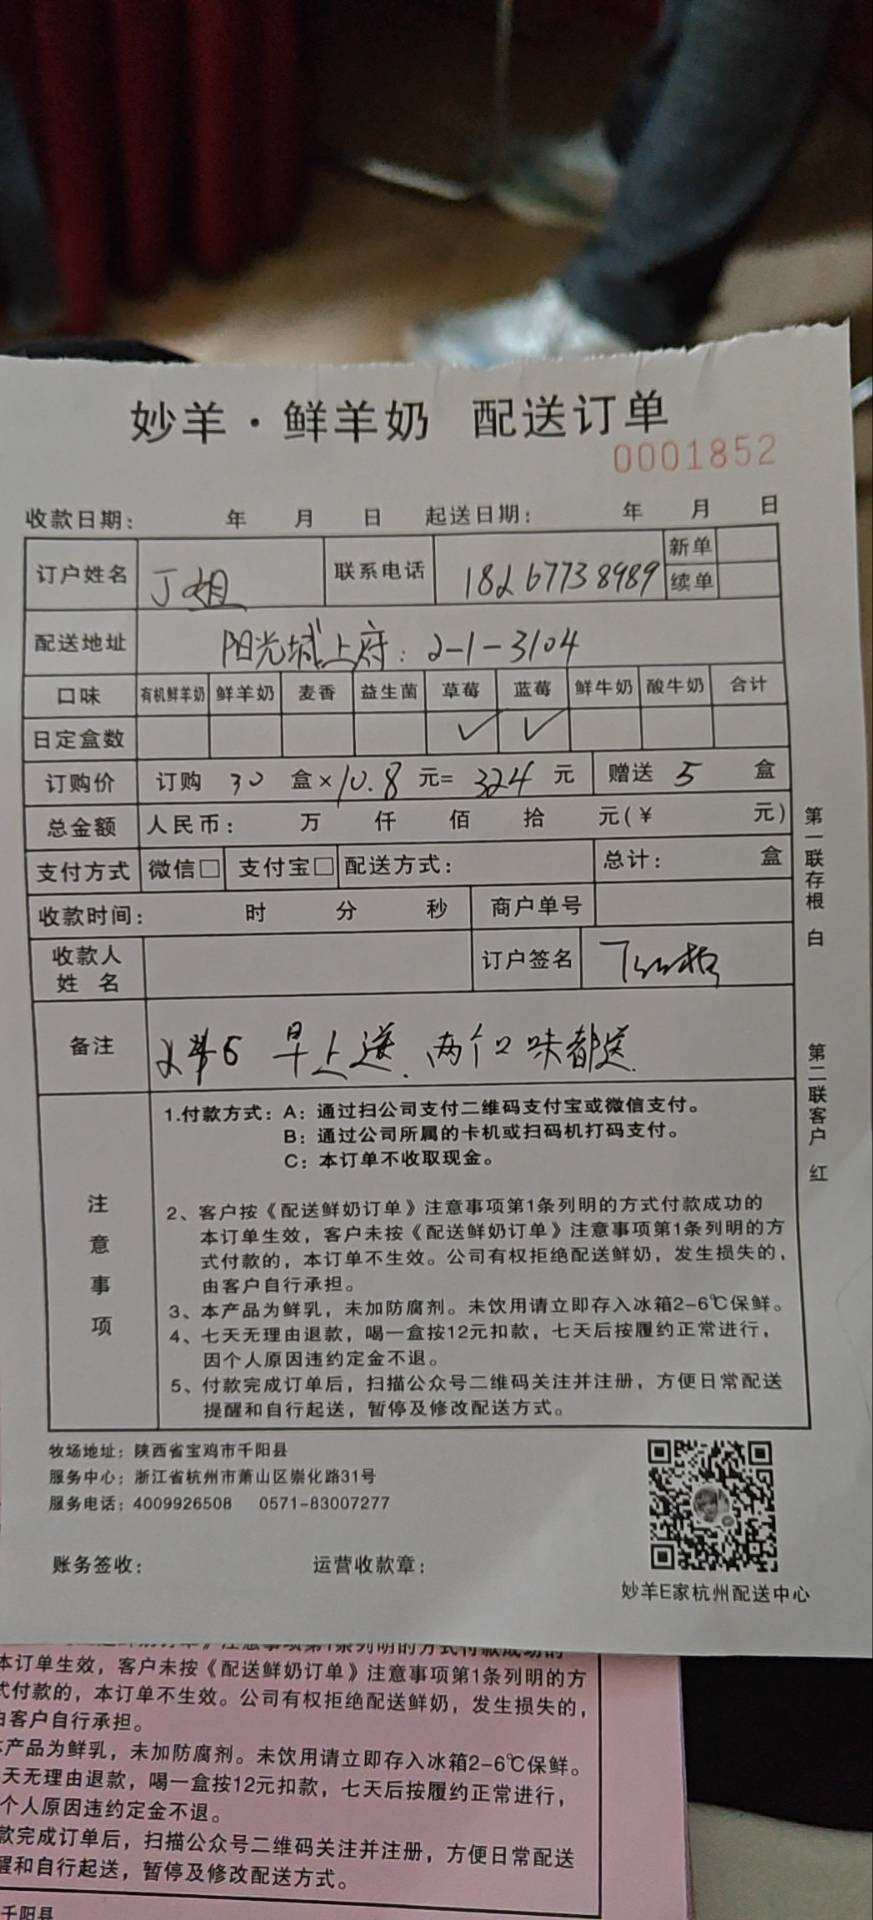 妙羊·鲜羊奶 配送订单
0001852
收款日期： 年 月 日 起送日期： 年 月 日
订户姓名 丁姐 联系电话 18267738989 新单
续单
配送地址 阳光城上府：2-1-3104
口味 有机鲜羊奶 鲜羊奶 麦香 益生菌 草莓 蓝莓 鲜牛奶 酸牛奶 合计
日定盒数 ✓ ✓
订购价 订购 30 盒×10.8 元=324 元 赠送 5 盒
总金额 人民币： 万 仟 佰 拾 元(¥ 元)
支付方式 微信□ 支付宝□ 配送方式： 总计： 盒
收款时间： 时 分 秒 商户单号
收款人
姓 名
订户签名
备注 早上送.两个口味都送.
注意事项
1.付款方式：A：通过扫公司支付二维码支付宝或微信支付。
B：通过公司所属的卡机或扫码机打码支付。
C：本订单不收取现金。
2、客户按《配送鲜奶订单》注意事项第1条列明的方式付款成功的
本订单生效，客户未按《配送鲜奶订单》注意事项第1条列明的方
式付款的，本订单不生效。公司有权拒绝配送鲜奶，发生损失的，
由客户自行承担。
3、本产品为鲜乳，未加防腐剂。未饮用请立即存入冰箱2-6℃保鲜。
4、七天无理由退款，喝一盒按12元扣款，七天后按履约正常进行，
因个人原因违约定金不退。
5、付款完成订单后，扫描公众号二维码关注并注册，方便日常配送
提醒和自行起送，暂停及修改配送方式。
第一联存根 白
第二联客户 红
牧场地址：陕西省宝鸡市千阳县
服务中心：浙江省杭州市萧山区崇化路31号
服务电话：4009926508 0571-83007277
账务签收： 运营收款章：
妙羊E家杭州配送中心
本订单生效，客户未按《配送鲜奶订单》注意事项第1条列明的方
式付款的，本订单不生效。公司有权拒绝配送鲜奶，发生损失的，
由客户自行承担。
产品为鲜乳，未加防腐剂。未饮用请立即存入冰箱2-6℃保鲜。
天无理由退款，喝一盒按12元扣款，七天后按履约正常进行，
个人原因违约定金不退。
款完成订单后，扫描公众号二维码关注并注册，方便日常配送
醒和自行起送，暂停及修改配送方式。
千阳县